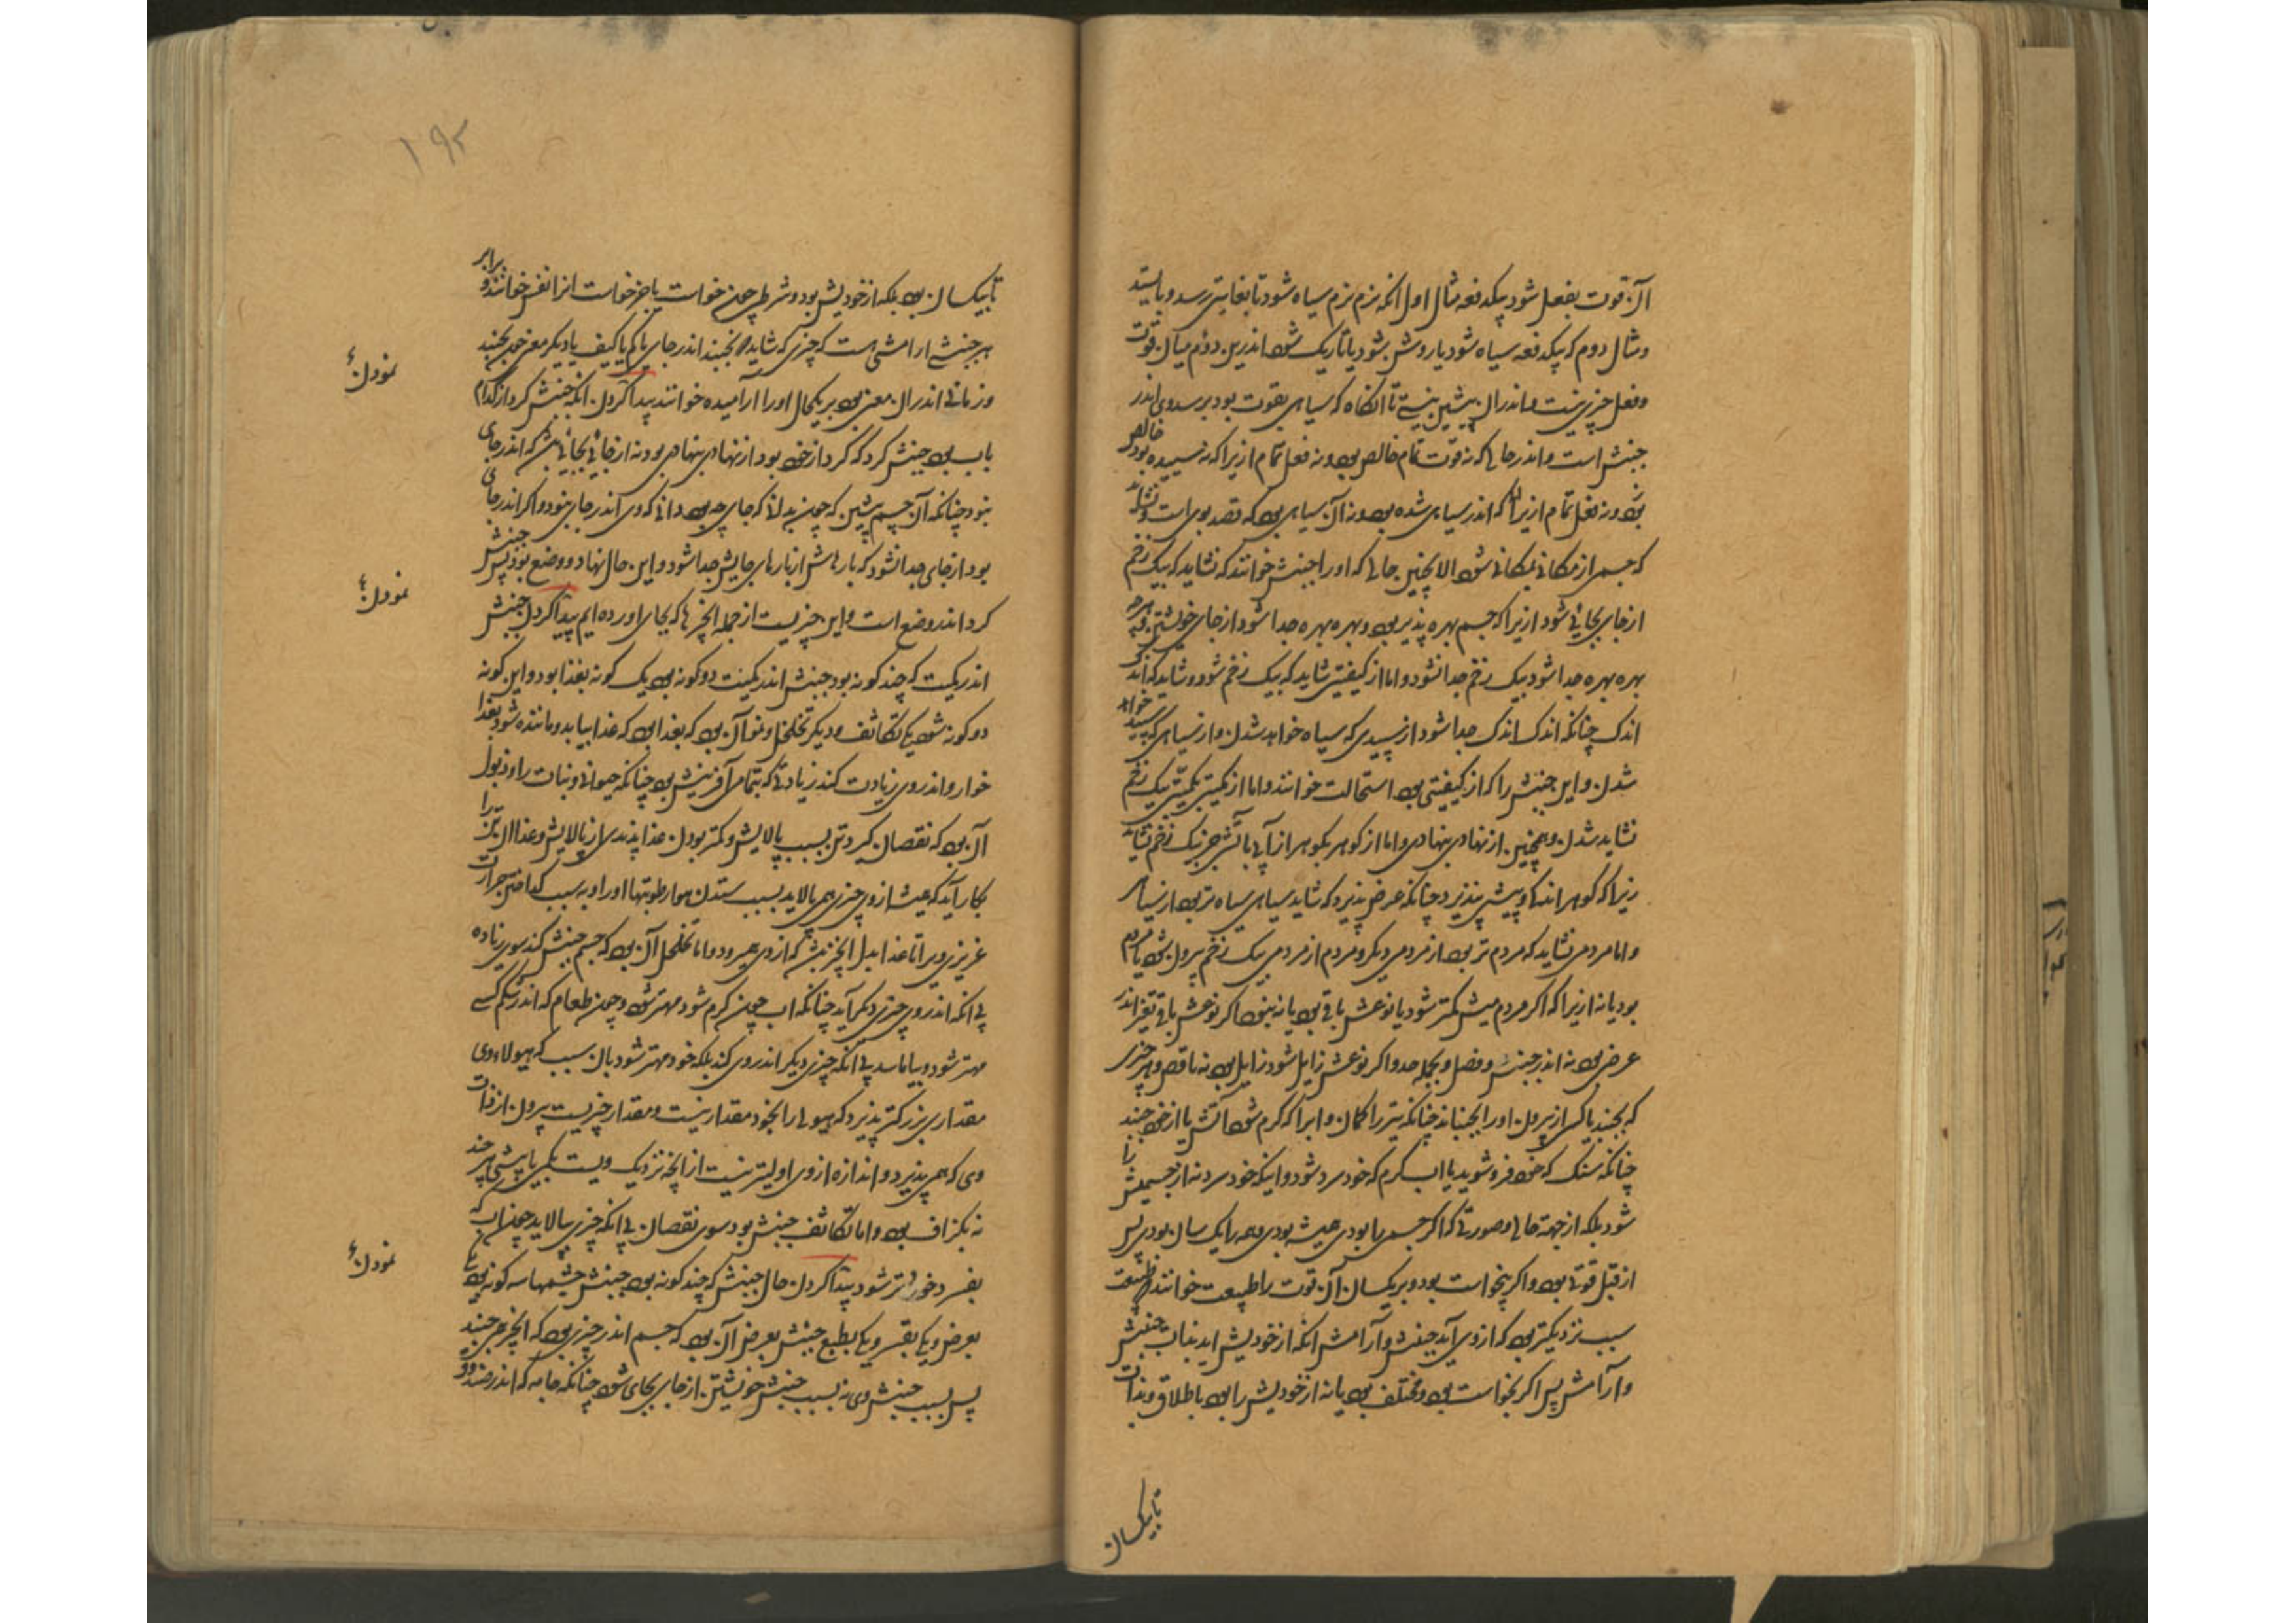 آن قوت بفعل شود بیکدفعه مثال اول انکه نرم نرم سیاه شود تا بغایتی رسد و بایستد
و مثال دوم که بیکدفعه سیاه شود یا روشن شود یا تاریک شود اندرین دوم میان قوت
و فعل چیزی نیست و اندران پیشین نیست تا انکاه که سیاهی بقوت بود برسد وی اندر
جنبش است و اندر حالی که نه قوت تمام خالص بود و نه فعل تمام ازیرا که نه سپیده بود خالص
بود و نه فعل تمام ازیرا که اندر سیاهی شده بود و نه آن سیاهی بود که قصد بوی است و نشاید
که جسم از مکانی بمکانی شود الا بچنین حالی که اورا جنبش خوانند که نشاید که بیک زخم
از جای بجائی شود ازیرا که جسم بهره پذیر بود و بهره بهره جدا شود از جای خویشتن و هرچه
بهره بهره جدا شود بیک زخم جدا نشود و اما از کیفیتی شاید که بیک زخم شود و شاید که اندک
اندک چنانکه اندک اندک جدا شود از سپیدی که سیاه خواهد شدن و از سیاهی که سپید خواهد
شدن و این جنبش را که از کیفیتی بود استحالت خوانند و اما از کمیتی بکمیتی بیک زخم
نشاید شدن و همچنین از نهادی بنهادی و اما از کوهر بکوهر از آبی باتشی جز بیک زخم نشاید
زیرا که کوهر اندکی و بیشی نپذیرد چنانکه عرض پذیرد که شاید سیاهی سیاه تر بود از سیاهی
و اما مردمی نشاید که مردم تر بود از مردمی دیکر و مردم از مردمی بیک زخم بیرون شود یا مردم
بود یا نه ازیرا که اکر مردمیش کمتر شود یا نوعش باقی بود یا نه بود اکر نوعش باقی تغیر اندر
عرض بود نه اندر جنس و فصل و بجمله حد و اکر نوعش زایل شود زایل بود نه ناقص و هر چیزی
که بجنبد یا کسی از بیرون اورا بجنباند چنانکه تیر را کمان و ابرا که کرم شود آتش یا از خود جنبد
چنانکه سنک که خود فرو شوید یا اب کرم که خود سرد شود و اینکه خود سرد نه از جسمیش را
شود بلکه از جهة حالی و صورتی که اکر جسمی را بودی همیشه بودی و همه را یک سان بودی پس
از قبل قوتی بود و اکر بیخواست بود و بر یکسان آن قوت را طبیعت خوانند و طبیعت
سبب نزدیکتر بود که از وی آید جنبش و آرامش انکه از خودیش اید نباب جنبش
و آرامش پس اکر بخواست بود و مختلف بود یا نه از خودیش را بود باطلاق و بذات
تا بیکسان
۱۹۲
تا بیکسان بود بلکه از خودیش بود و شرطی چون خواست یا جز خواست انرا نفس خوانند و برابر
هر جنبشی ارامشی است که چیزی که شاید بجنبد اندر جای یا کم یا کیف یا دیکر معنی چون نجنبد
و زمانی اندران معنی بود بر یکحال اورا آرامیده خوانند پیدا کردن انکه جنبش کرد از کدام
باب بود جنبش کرد که کرد از خود بود از نهادی بنهادی بود نه از جائی بجائی که اندر جای
نبود چنانکه آن جسم پیشین که چون بدانی که جای چه بود دانی که وی اندر جای نبود و اکر اندر جای
بود از جای جدا نشود که پارهاش از پارهای جایش جدا شود و این حال نهاد و وضع بود پس جنبش
کرد اندر وضع است و این چیزیست از جمله انچیزها که بجای اورده ایم پیدا کردن جنبش
اندر کمیت که چند کونه بود جنبش اندر کمیت دو کونه بود یک کونه بغذا بود و این کونه
دو کونه شود یکی تکاثف و دیکر تخلخل و نمو آن بود که بغذا بود که غذا بیابد و ماننده شود بغذا
خوار و اندر وی زیادت کند زیادتی که بتمامی آفرینش بود چنانکه حیوانی و نبات را و ذبول
آن بود که نقصان کیرد تن بسبب پالایش و کمتر بودن غذا پذیدی از پالایش و غذا ان تن را
بکار آید که همیشه از وی چیزی همی پالاید بسبب ستدن هوا رطوبتها اورا و به سبب کداختن حرارت
غریزی ویرا تا غذا بدل انچیز بود که از وی همیرود و اما تخلخل آن بود که جسم جنبش کند سوی زیاده
بی انکه اندر وی چیزی دیکر آید چنانکه اب چون کرم شود مهتر شود و چون طعام که اندر شکم کسی
مهتر شود و بیاماسد بی انکه چیزی دیکر اندر وی کند بلکه خود مهتر شود بان سبب که هیولاء وی
مقداری بزرکتر پذیرد که هیولی را بخود مقدار نیست و مقدار چیزیست بیرون از ذات
وی که همی پذیرد و اندازه از وی اولیتر نیست از انچه نزدیک ویست بکمی یا بیشی هر چند
نه بکزاف بود و اما تکاثف جنبش بود سوی نقصان بی انکه چیزی پالاید چون اب که
بفسرد خورد تر شود پیدا کردن حال جنبش که چند کونه بود جنبش جسمها سه کونه بود یکی
بعرض و یکی بقسر و یکی بطبع جنبش بعرض آن بود که جسم اندر چیزی بود که انچیز همی جنبد
پس بسبب جنبش وی نه بسبب جنبش خویشتن از جای بجای شود چنانکه جامه که اندر صندوق
نمودن
نمودن
نمودن